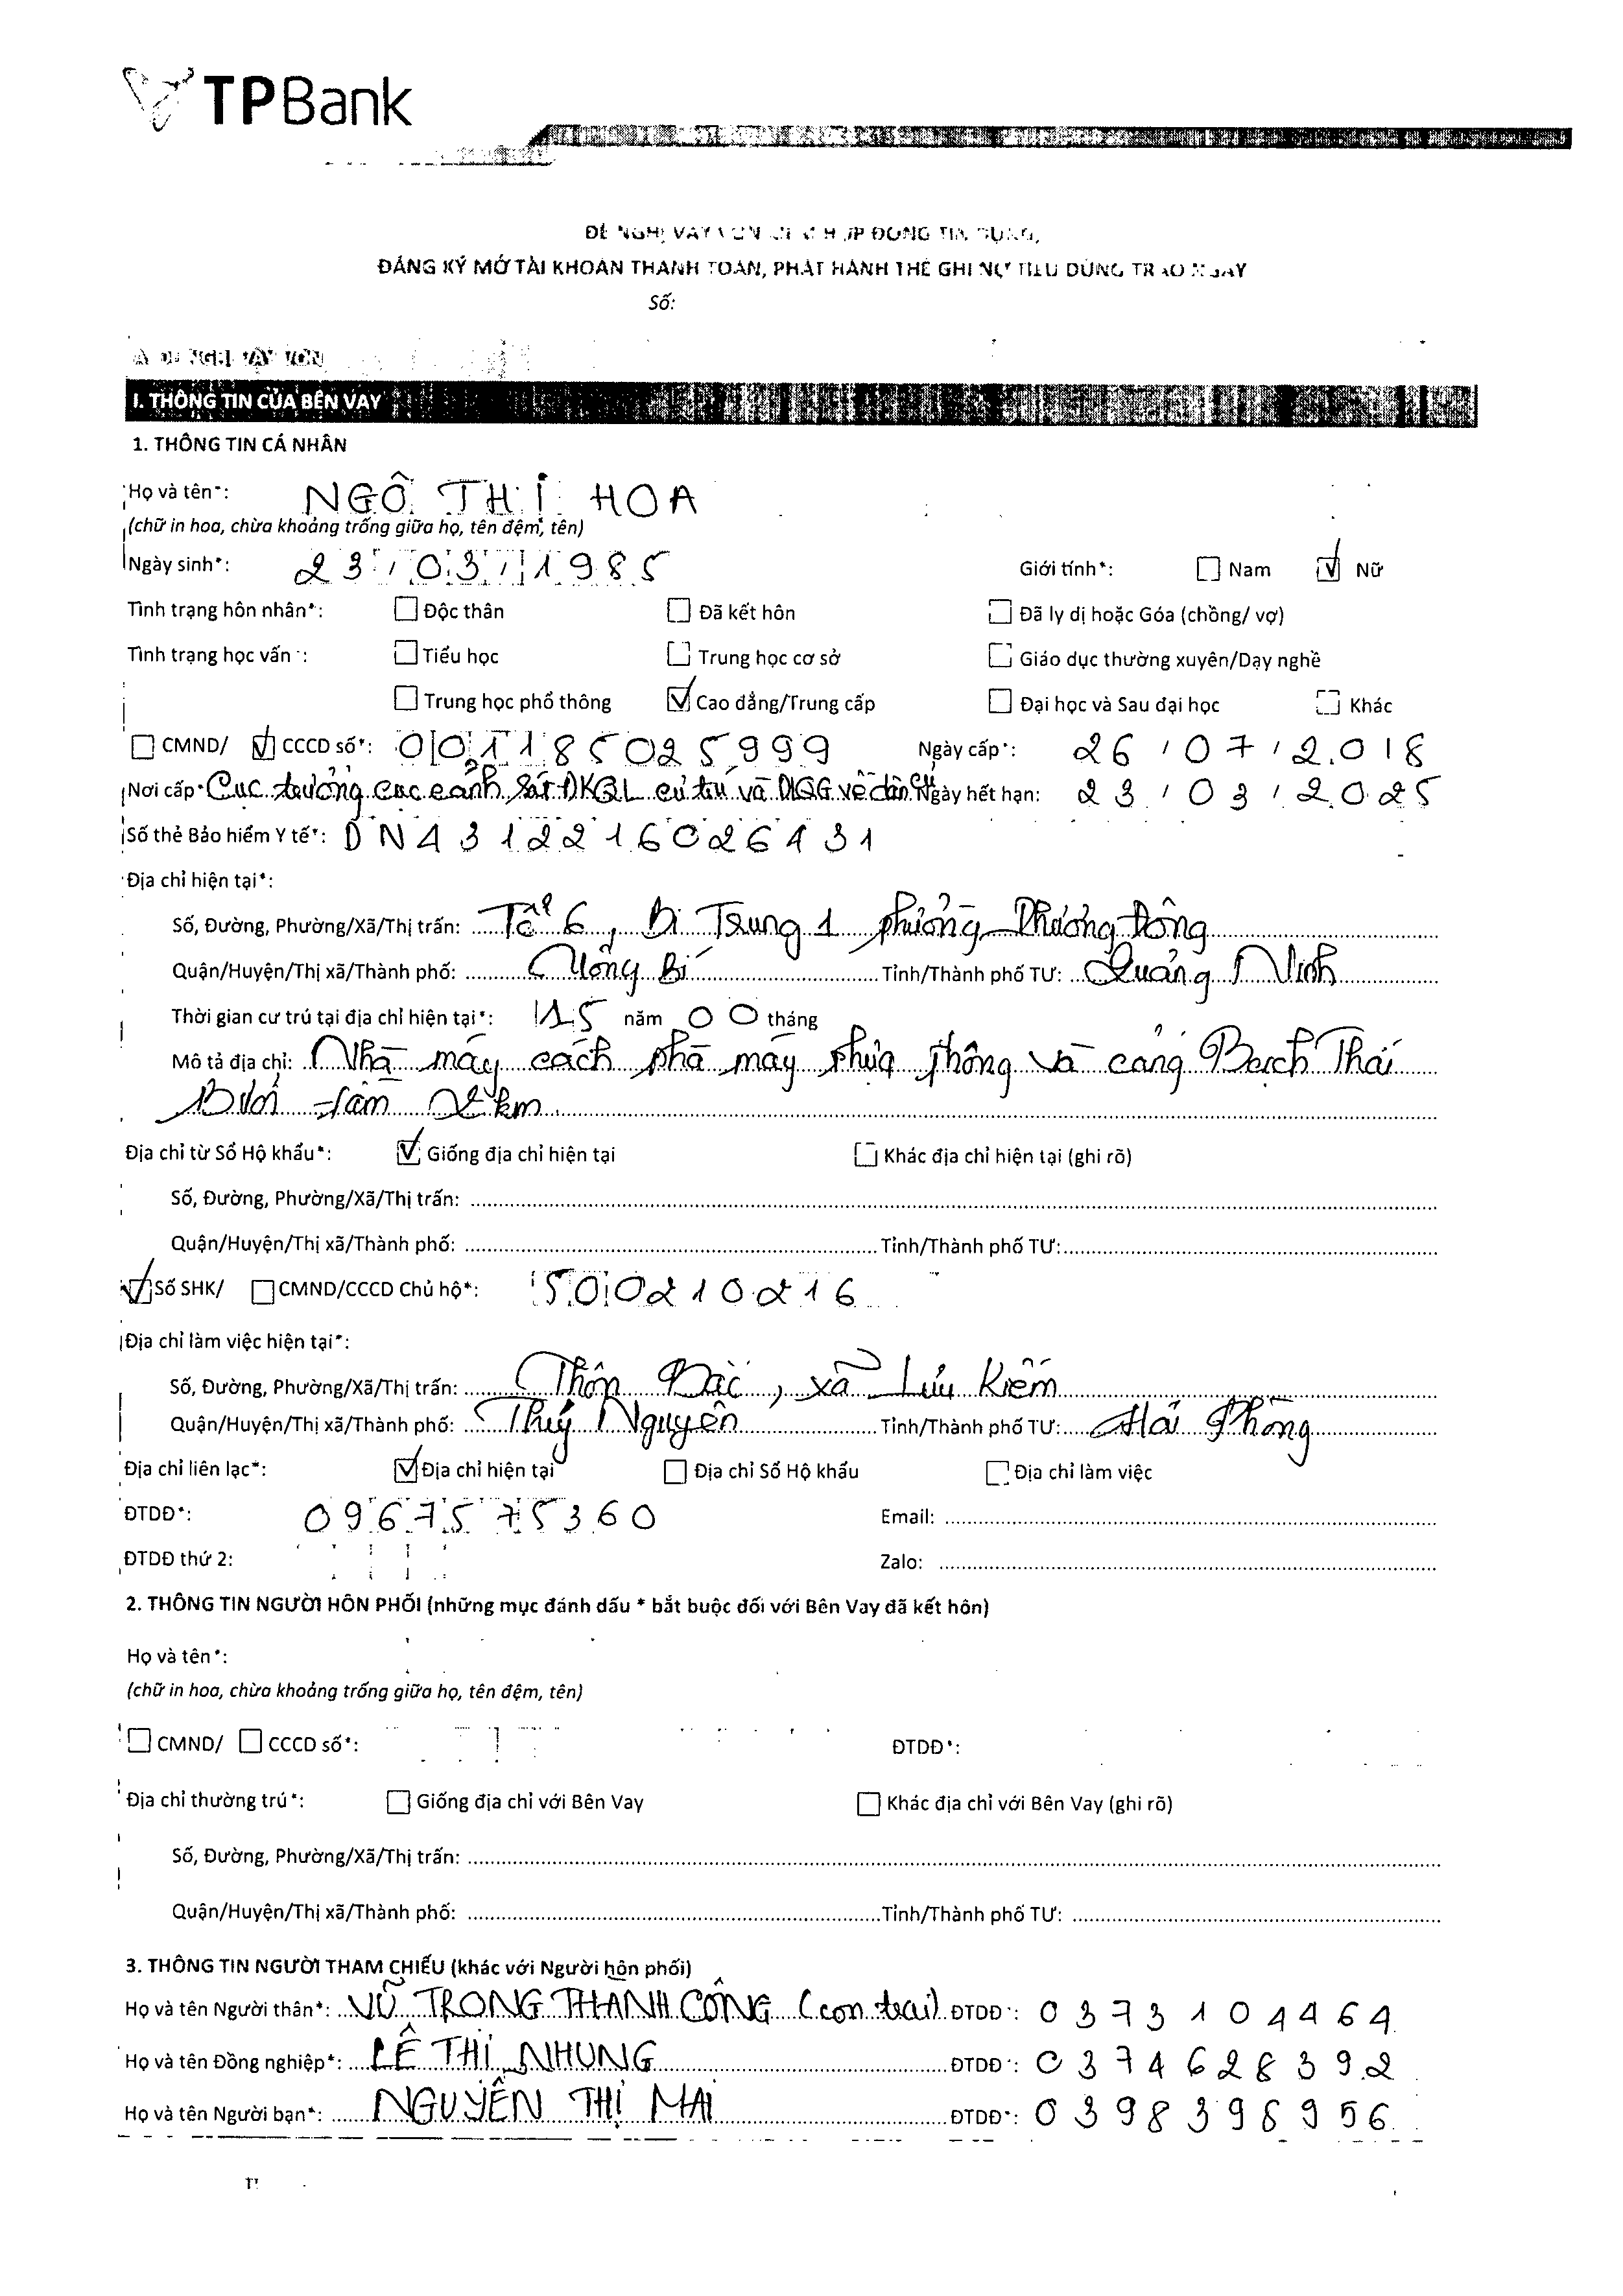 TPBank
ĐỀ NGHỊ VAY VỐN HỢP ĐỒNG TÍN DỤNG,
ĐĂNG KÝ MỞ TÀI KHOẢN THANH TOÁN, PHÁT HÀNH THẺ GHI NỢ TIÊU DÙNG TRAO NGAY
Số:
A ĐỀ NGHỊ VAY VỐN
I. THÔNG TIN CỦA BÊN VAY
1. THÔNG TIN CÁ NHÂN
Họ và tên*: NGÔ THỊ HOA
(chữ in hoa, chừa khoảng trống giữa họ, tên đệm, tên)
Ngày sinh*: 23/03/1985 Giới tính*: Nam Nữ
Tình trạng hôn nhân*: Độc thân Đã kết hôn Đã ly dị hoặc Góa (chồng/ vợ)
Tình trạng học vấn*: Tiểu học Trung học cơ sở Giáo dục thường xuyên/Dạy nghề
Trung học phổ thông Cao đẳng/Trung cấp Đại học và Sau đại học Khác
CMND/ CCCD số*: 001185025999 Ngày cấp*: 26/07/2018
Nơi cấp* Cục trưởng cục cảnh sát ĐKQL cư trú và DLQG về dân cư Ngày hết hạn: 23/03/2025
Số thẻ Bảo hiểm Y tế*: DN4312216026431
Địa chỉ hiện tại*:
Số, Đường, Phường/Xã/Thị trấn: Tổ 6, Bí Trung 1 phường Phương Đông
Quận/Huyện/Thị xã/Thành phố: Uông Bí Tỉnh/Thành phố TƯ: Quảng Ninh
Thời gian cư trú tại địa chỉ hiện tại*: 15 năm 00 tháng
Mô tả địa chỉ: Nhà máy cách nhà máy nhựa thông và cảng Bạch Thái
Bưởi tầm 2km
Địa chỉ từ Sổ Hộ khẩu*: Giống địa chỉ hiện tại Khác địa chỉ hiện tại (ghi rõ)
Số, Đường, Phường/Xã/Thị trấn:
Quận/Huyện/Thị xã/Thành phố: Tỉnh/Thành phố TƯ:
Số SHK/ CMND/CCCD Chủ hộ*: 500210216
Địa chỉ làm việc hiện tại*:
Số, Đường, Phường/Xã/Thị trấn: Thôn Bắc, xã Lưu Kiếm
Quận/Huyện/Thị xã/Thành phố: Thuỷ Nguyên Tỉnh/Thành phố TƯ: Hải Phòng
Địa chỉ liên lạc*: Địa chỉ hiện tại Địa chỉ Sổ Hộ khẩu Địa chỉ làm việc
ĐTDĐ*: 0967575360 Email:
ĐTDĐ thứ 2: Zalo:
2. THÔNG TIN NGƯỜI HÔN PHỐI (những mục đánh dấu * bắt buộc đối với Bên Vay đã kết hôn)
Họ và tên*:
(chữ in hoa, chừa khoảng trống giữa họ, tên đệm, tên)
CMND/ CCCD số*: ĐTDĐ*:
Địa chỉ thường trú*: Giống địa chỉ với Bên Vay Khác địa chỉ với Bên Vay (ghi rõ)
Số, Đường, Phường/Xã/Thị trấn:
Quận/Huyện/Thị xã/Thành phố: Tỉnh/Thành phố TƯ:
3. THÔNG TIN NGƯỜI THAM CHIẾU (khác với Người hôn phối)
Họ và tên Người thân*: VŨ TRỌNG THÀNH CÔNG (con trai) ĐTDĐ*: 0373104464
Họ và tên Đồng nghiệp*: LÊ THỊ NHUNG ĐTDĐ*: 0374628392
Họ và tên Người bạn*: NGUYỄN THỊ MAI ĐTDĐ*: 0398398956